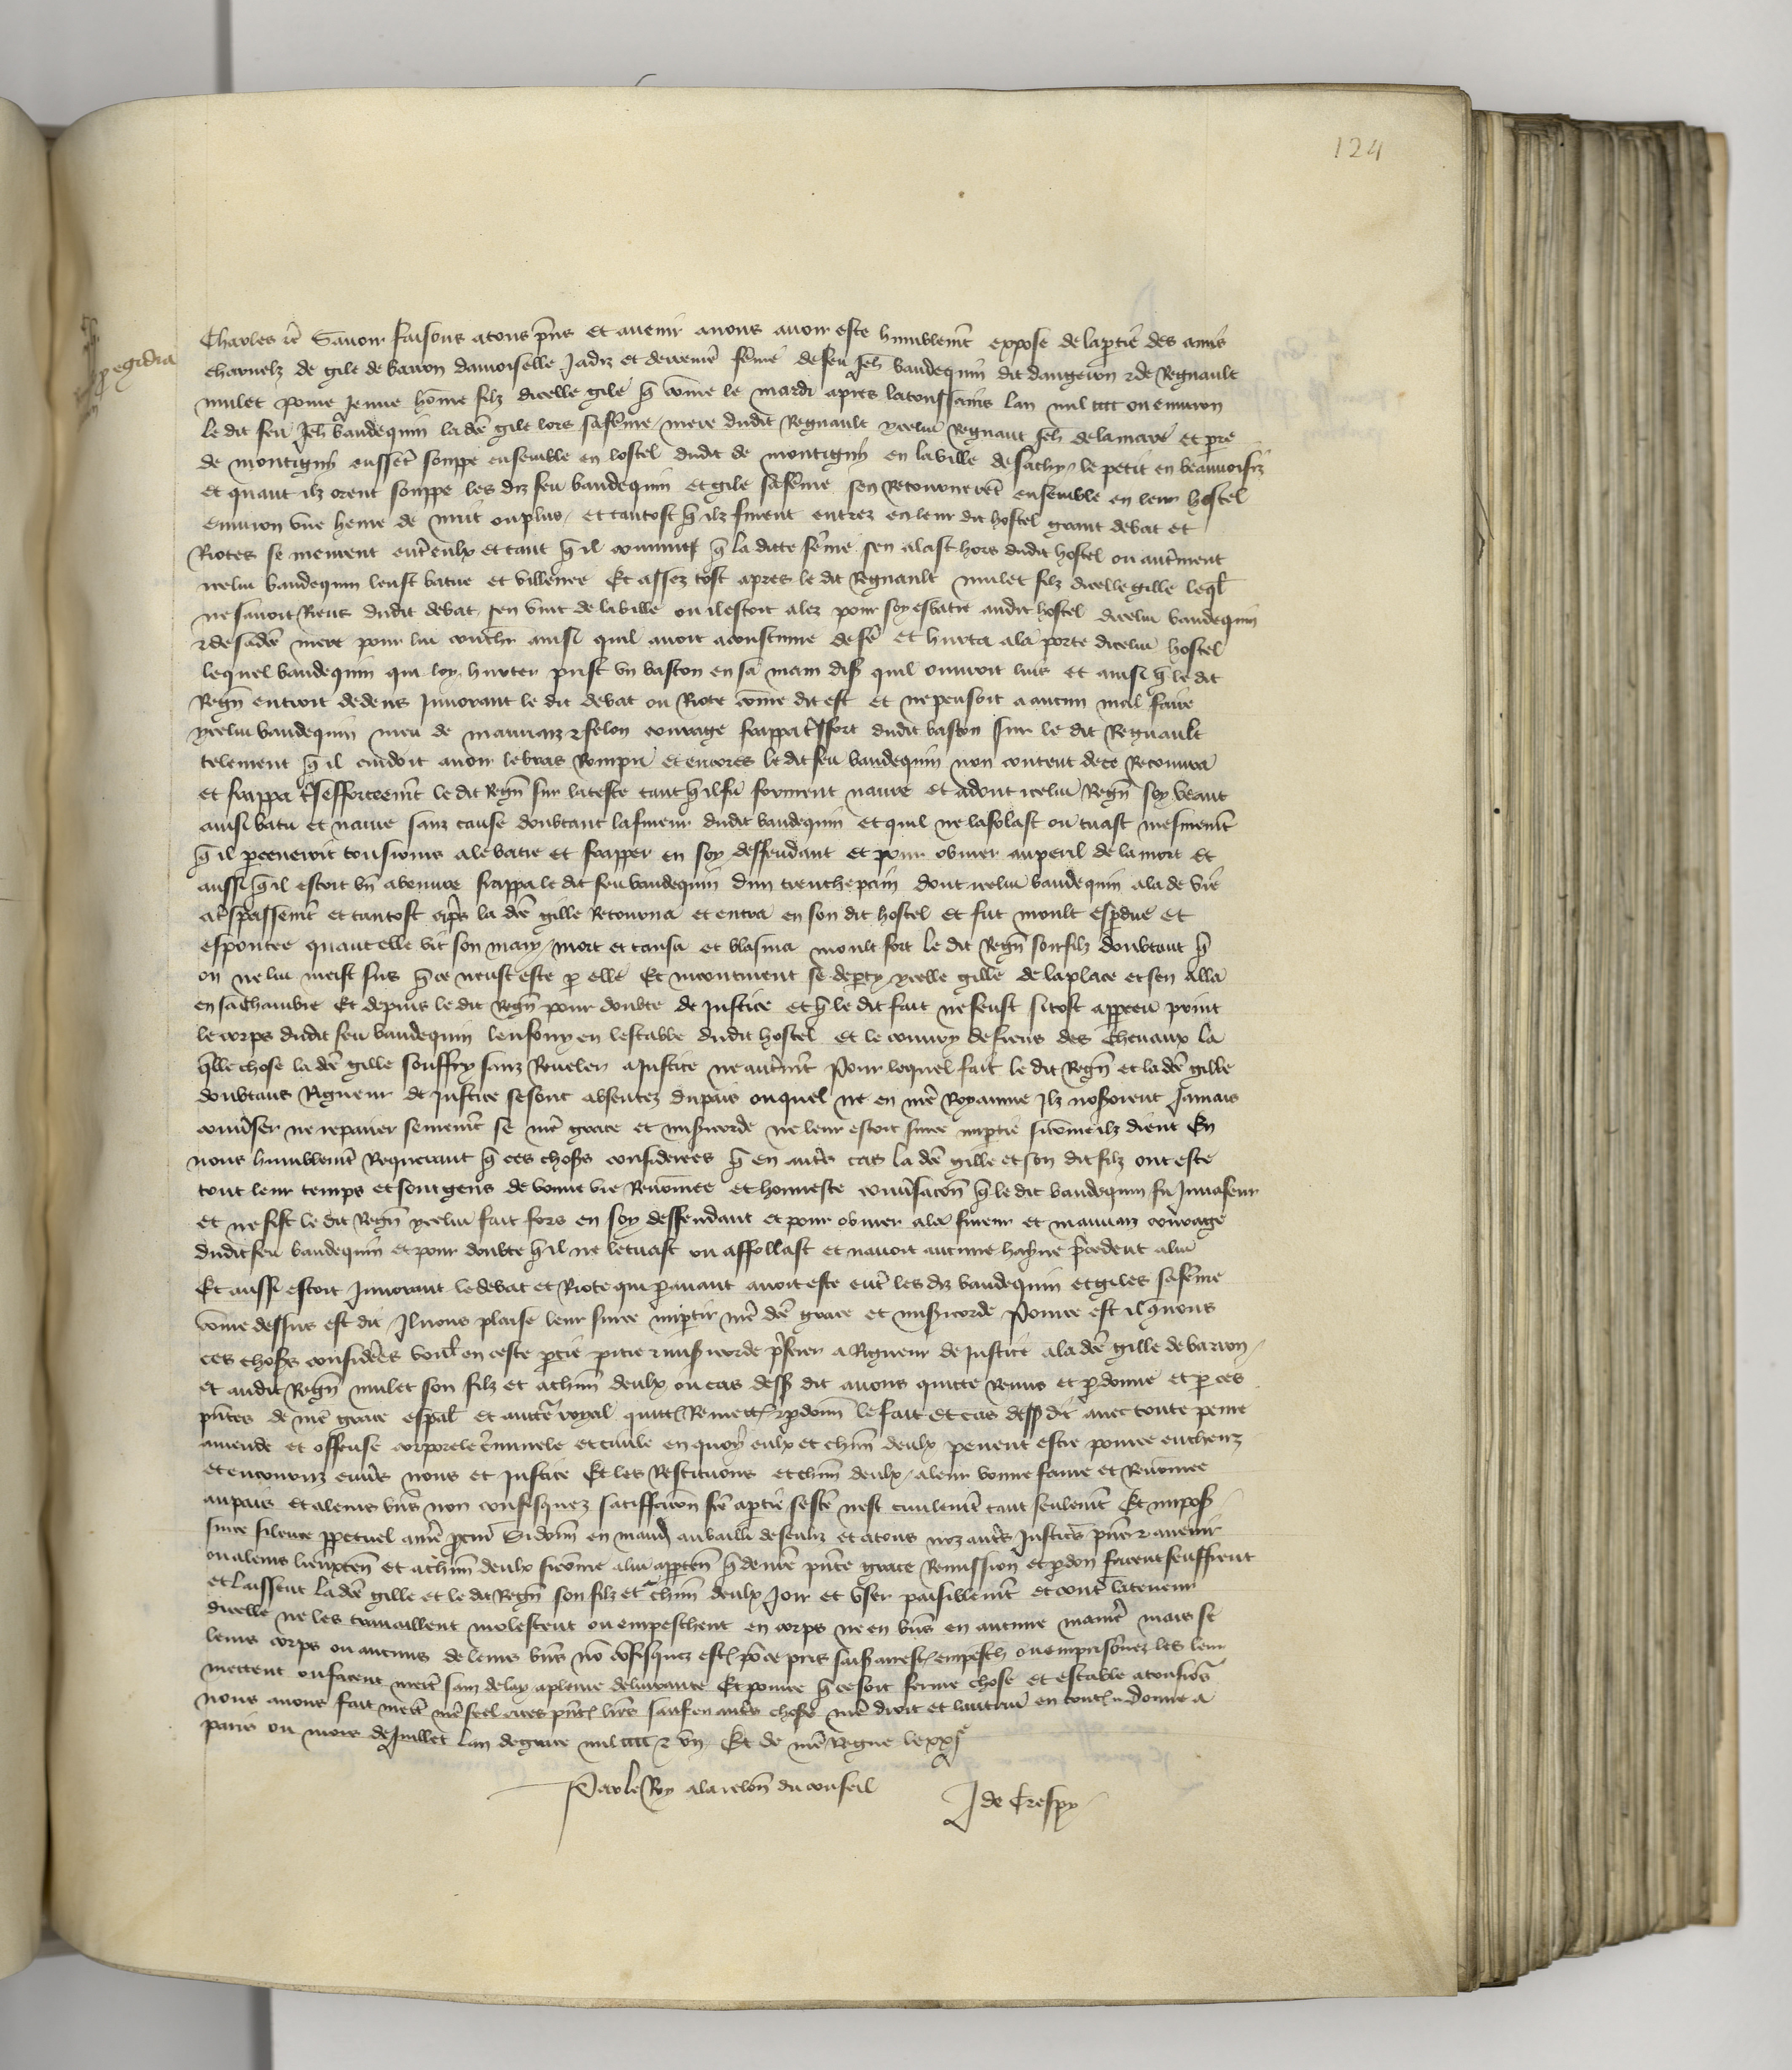 124
p egidia
Charles etc Savoir faisons a tous pñs et avenir avons avoir este humblemt expose de la partie des amis
charnelz de gile de barron damoiselle Jadiz et derremẽ fẽme de feu Jeh baudequin dit dangeron & de Regnault
mulet povre Jenne hõme filz dicelle gile q̃ cõme le mardi apres la toussains lan mil cccc ou environ
le dit feu Jeh baudequin la dẽ gile lors sa fẽme mere dudit Regnault ycelui Regnaut Jeh de la mare et pre
de montigny eussẽt souppe ensemble en lostel dudit de montigny en la ville de sachy le petit en beauvoisiz
et quant ilz orent souppe les diz feu baudequin et gile sa fẽme sen Retournerẽt ensemble en leur hostel
environ une heure de nuit ou plus et tantost q̃ ilz furent entrez en leur dit hostel grant debat et
Riotes se meurent entr eulx et tant q̃ il convint q̃ la ditte fẽme sen alast hors dudit hostel ou autrment
icelui baudequin leust batue et villenee Et assez tost apres le dit Regnault mulet filz dicelle gille leql
ne savoit Riens dudit debat sen vint de la ville ou il estoit alez pour soy esbatre audit hostel dicelui baudequin
& de sa dẽ mere pour lui couchr ainsi quil avoit acoustume de fẽ et hurta a la porte dicelui hostel
lequel baudequin qui loy hurter prist un baston en sa main dis quil ouvroit luis et ainsi q̃ le dit
Regñ entroit dedens Jnnorant le dit debat ou Riote cõme dit est et ne pensoit a aucun mal faire
ycelui baudequin meu de mauvaiz & felon courage frappa trẽs fort dudit baston sur le dit Regnault
telement q̃ il cuidoit avoir le bras Rompu et encores le dit feu baudequin non content de ce Recouvra
et frappa trẽs efforceemt le dit Regñ sur la teste tant q̃ il fu forment navre et adont icelui Regñ soy veant
ainsi batu et navre sanz cause doubtant la fureur dudit baudequin et quil ne lafolast ou tuast mesmemt
q̃ il perceveroit tousiours a le batre et frapper en soy deffendant et pour obvier au peril de la mort et
aussi q̃ il estoit un abeuvre frappa le dit feu baudequin dun trenchepain dont icelui baudequin ala de vie
a trespassemt et tantost aps la dẽ gille Retourna et entra en son dit hostel et fut moult esperdue et
espontee quant elle vit son mary mort et tansa et blasma moult fort le dit Regñ son filz doubtant q̃
on ne lui meist sus q̃ ce neust este p elle Et incontinent se dpty ycelle gille de la place et sen alla
en sa chambre Et depuis le dit Regñ pour doubte de justice et q̃ le dit fait ne feust si tost apperceu print
le corps dudit feu baudequin lenfouy en lestable dudit hostel et le couvry de fiens des chevaux la
qlle chose la dẽ gille souffry sanz Reveler a justice ne autrmt Pour lequel fait le dit Regñ et la dẽ gille
doubtans Rigueur de justice se sont absentez du pais ouquel ne en nrẽ Royaume Ilz noseroient Jamais
convser ne repairer seuremt se nrẽ grace et misericorde ne leur estoit sur ce imptie sicõme ilz dient En
nous humblemt Requerant q̃ ces choses considerees q̃ en autrs cas la dẽ gille et son dit filz ont este
tout leur temps et sont gens de bonne vie Renõmee et honneste conversacõn q̃ le dit baudequin fu Jnvaseur
et ne fist le dit Regñ ycelui fait fors en soy deffendant et pour obvier a la fureur et mauvaiz courage
dudit feu baudequin et pour doubte q̃ il ne le tuast ou affollast et navoit aucune hayne precedent a lui
Et aussi estoit Jnnorant le debat et Riote qui p avant avoit este entr les diz baudequin et giles sa fẽme
cõme dessus est dit Il nous plaise leur sur ce imptir nrẽ dẽ grace et misericorde Pour ce est il q̃ nous
ces choses considerees voult en ceste ptie pitie & misericorde preferer a Rigueur de Justice a la dẽ gille de barron
et audit Regñ mulet son filz et a chũn deulx ou cas dess dit avons quitte Remis et pdonne et p ces
pñtes de nrẽ grace espal et auctẽ royal quitt Remett & pdonn le fait et cas dess dit avec toute peine
amende et offense corporele criminele et civile en quoy eulx et chũn deulx pevent estre pour ce encheuz
et encouruz envs nous et justice Et les Restituons et chũn deulx a leur bonne fame et Renõmee
au pais et a leurs biẽs non confisquez satisffacion fẽ a ptie seste nest civilemt tant seulemt Et impos
sur ce silence ppetuel a nrẽ pcur Si donñ en mand au bailli de senliz et a tous noz autrs justicẽs pñs & avenir
ou a leurs lieuxteñ et a chũn deulx sicõme a lui apptenñ q̃ de nrẽ pñte grace Remission et pdon facent seuffrent
et laissent la dẽ gille et le dit Regñ son filz et a chũn deulx Joir et user paisiblemt et contr la teneur
dicelle ne les travaillent molestent ou empeschent en corps ne en biẽs en aucune maniẽ mais se
leurs corps ou aucuns de leurs biẽs nõ cõfisquez est p ce pris saisi arrest empesch ou emprisonez les leur
mettent ou facent mettr sanz delay a pleine delivrance Et pour ce q̃ ce soit ferme chose et estable a tousiõs
nous avons fait mettr nrẽ seel a ces pñt lrẽs sauf en autrs choses nrẽ droit et lautrui en tout Donne a
paris ou mois de Juillet lan de grace mil cccc & un Et de nrẽ Regne le xxj
Par le Roy a la relon du conseil
J de Crespy